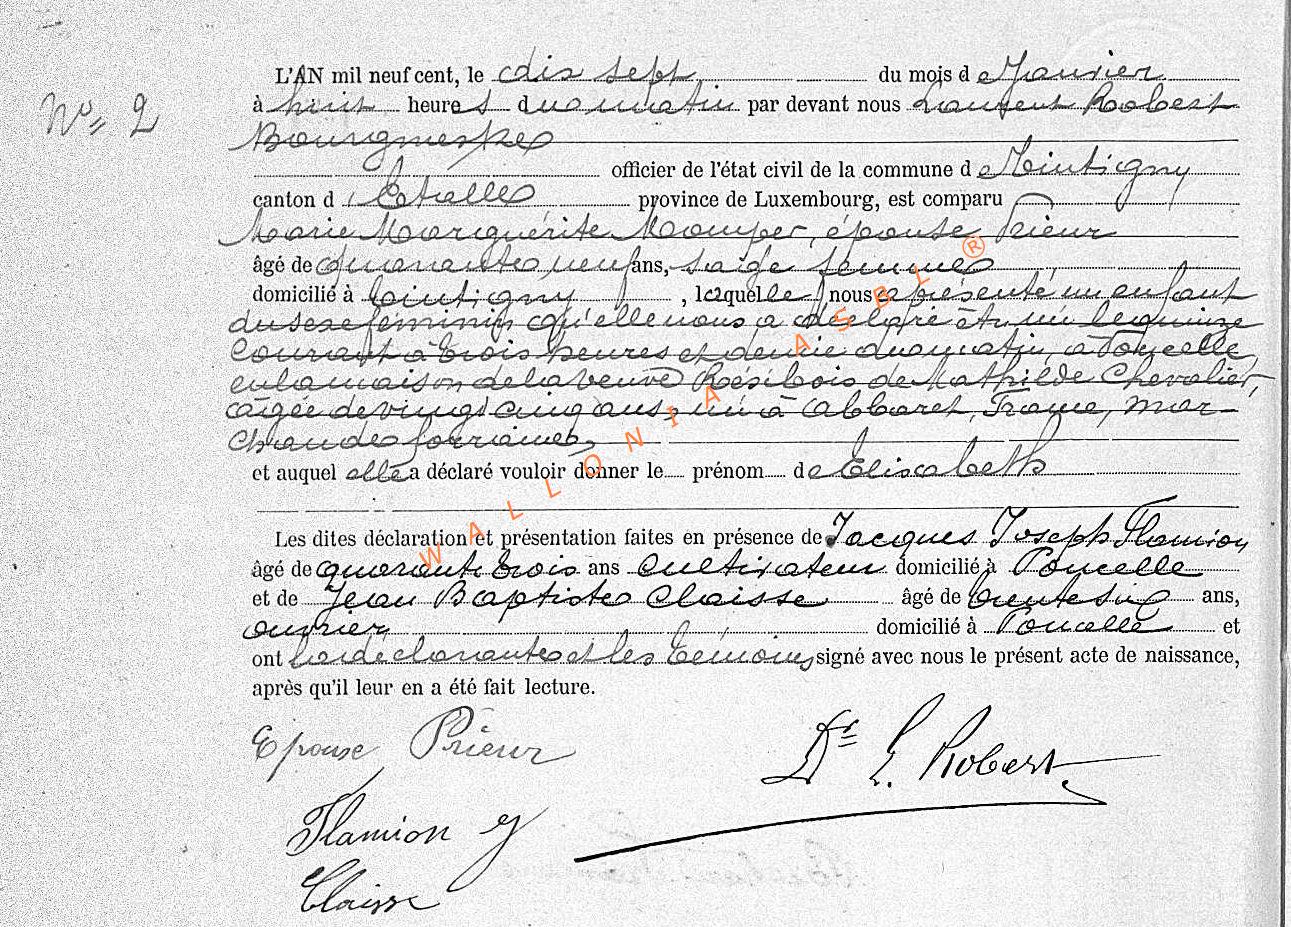 L'AN mil neuf cent, le dix sept du mois de Janvier
N° 2
à huit heures du matin par devant nous Laurent Robert
Bourgmestre
officier de l'état civil de la commune de Tintigny
canton d'Etalle province de Luxembourg, est comparu
Marie Marguérite Kemper, épouse Prieur
âgé de quarante neuf ans, sage femme
domicilié à Tintigny, laquelle nous a présenté un enfant
du sexe féminin qu'elle nous a déclaré être né le quinze
courant à trois heures et demie du matin, à Poncelle,
en la maison de la veuve Résibois de Mathilde Chevalier,
âgée de vingt cinq ans, née à France, mar-
chande foraine,
et auquel elle a déclaré vouloir donner le prénom de Elisabeth
Les dites déclaration et présentation faites en présence de Jacques Joseph Flamion
âgé de quarante trois ans cultivateur domicilié à Poncelle
et de Jean Baptiste Claisse âgé de ans,
ouvrier domicilié à Poncelle et
ont la déclarante et les témoins signé avec nous le présent acte de naissance,
après qu'il leur en a été fait lecture.
Epouse Prieur
Dr L. Robert
Flamion J
Claisse
WALLONIA ASBL ®